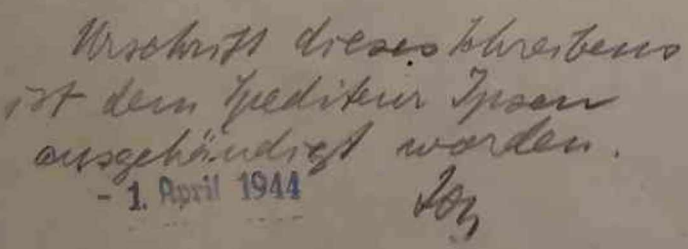 Urschrift dieses Schreibens
ist dem Spediteur Ipsen
ausgehändigt worden.
- 1. April 1944